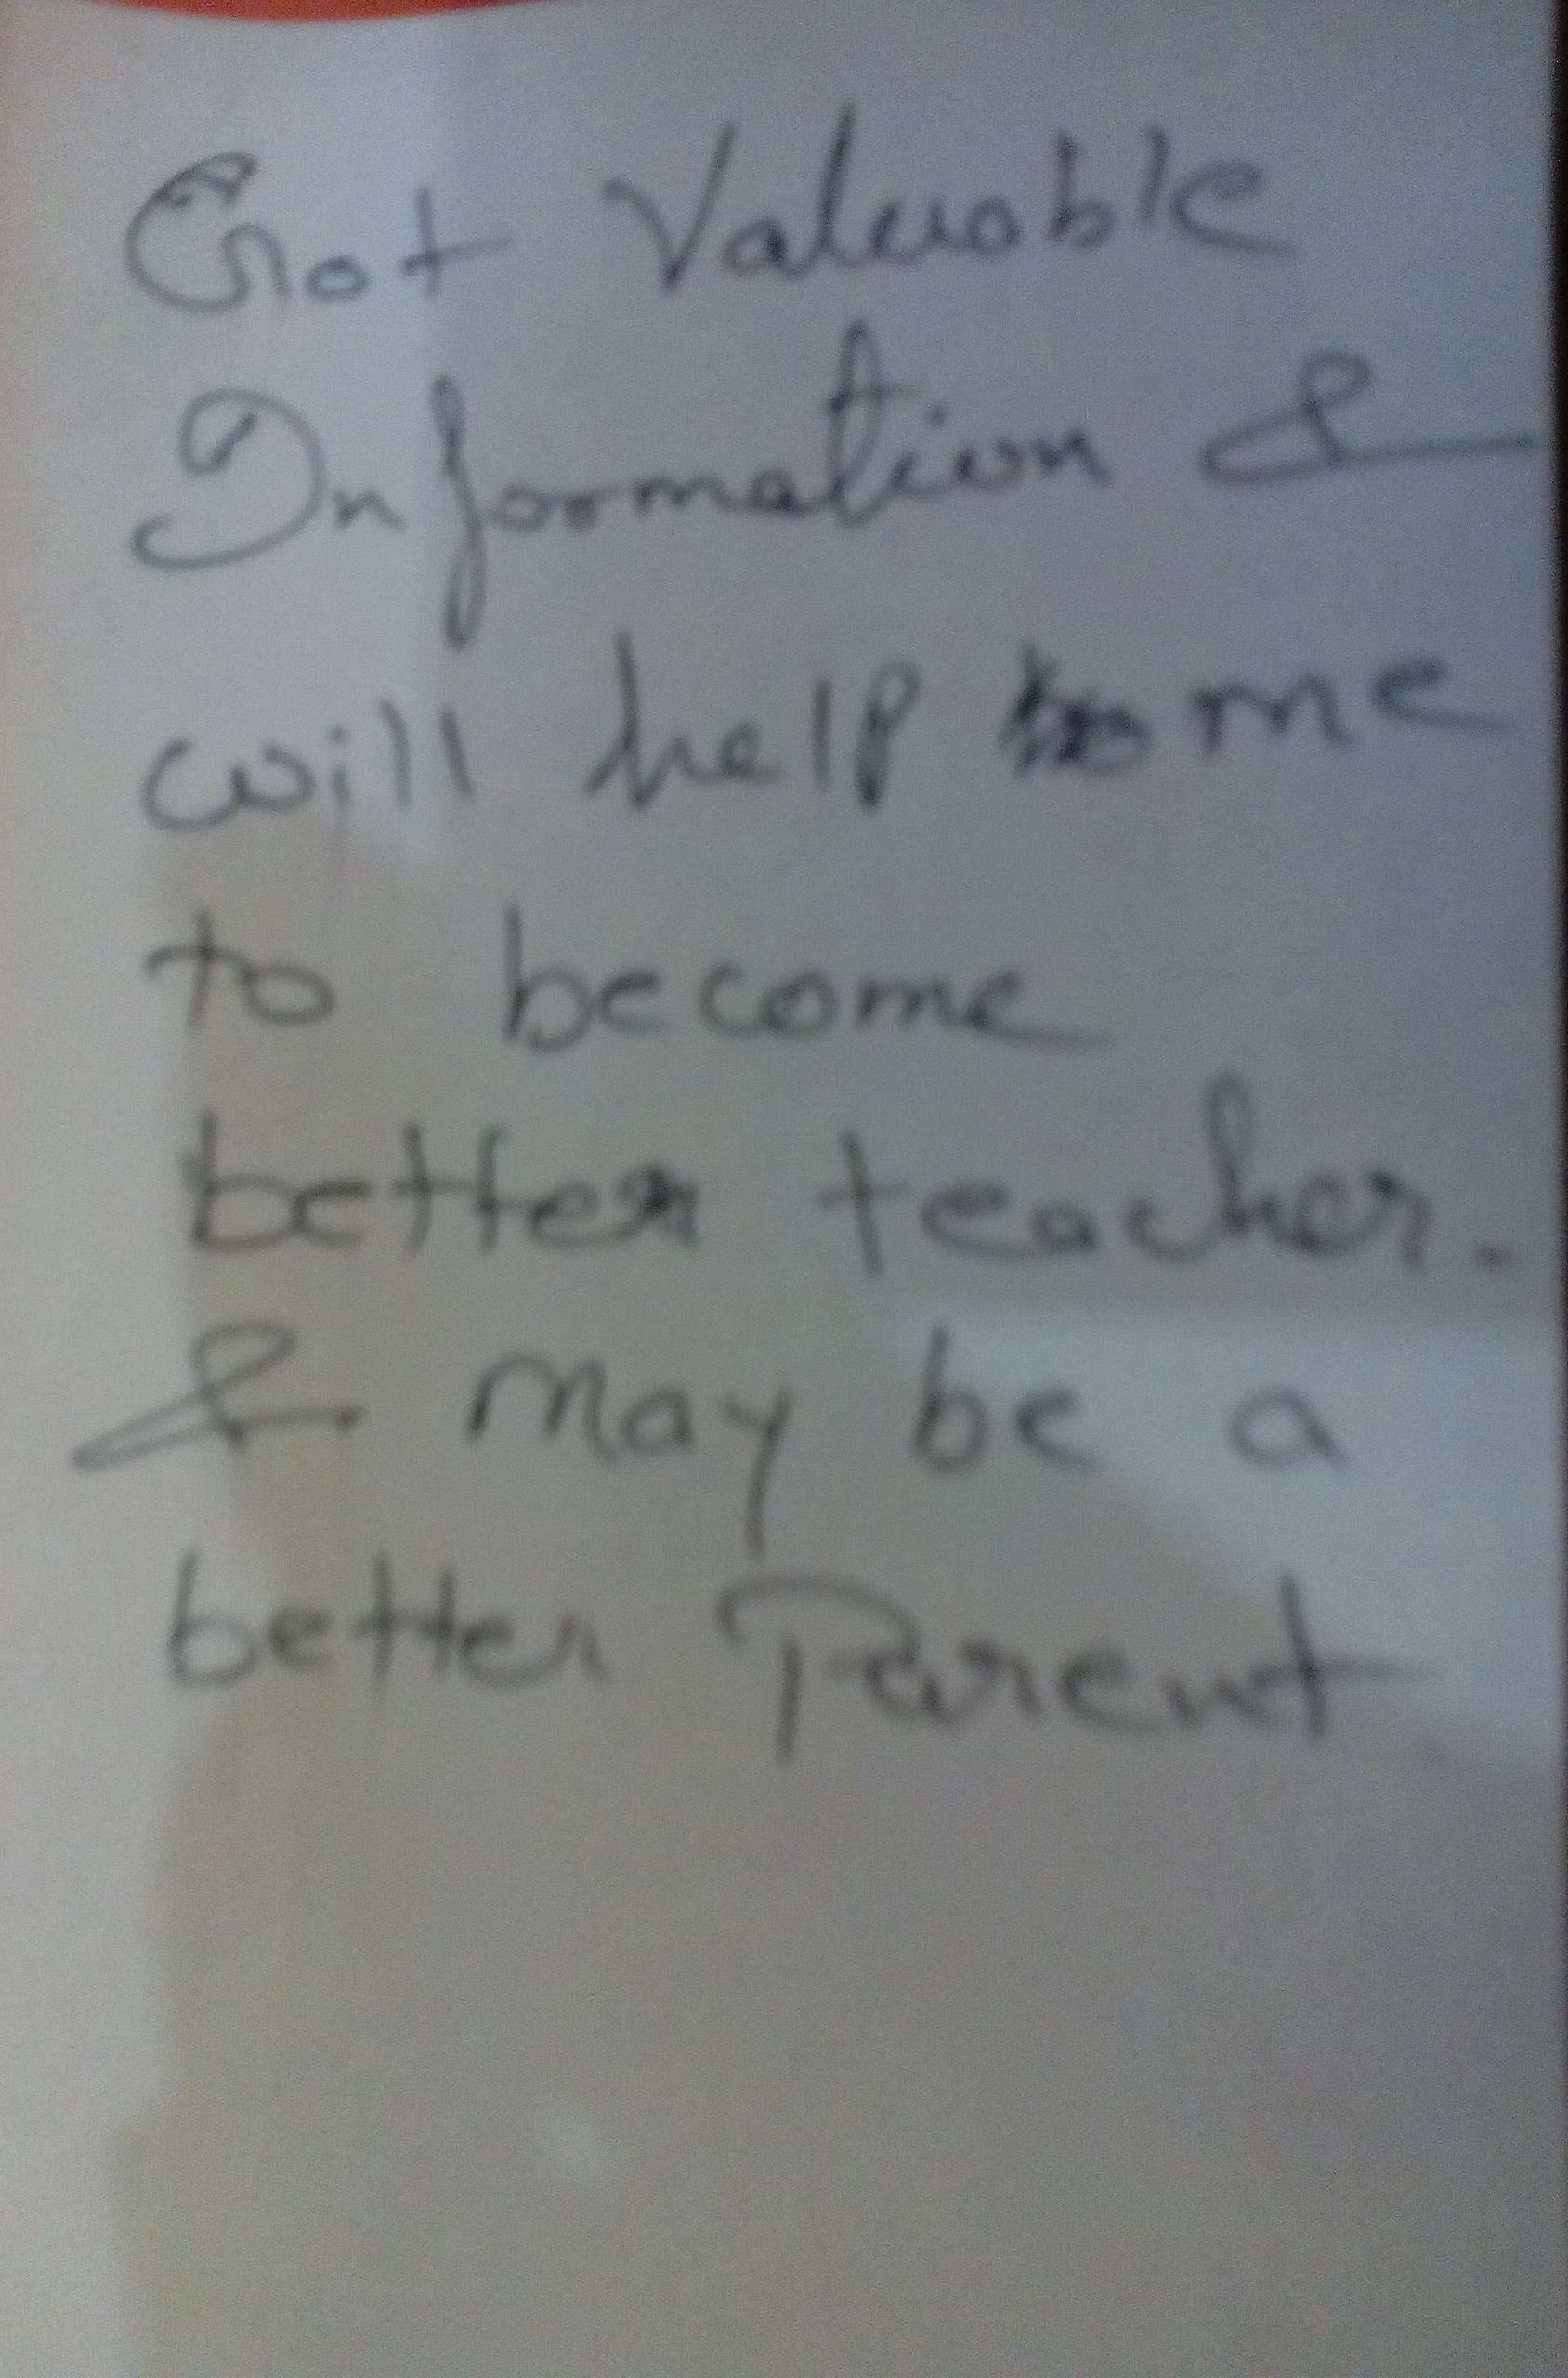 Got Valuable
Information &
will help me
to become
better teacher.
& may be a
better Parent